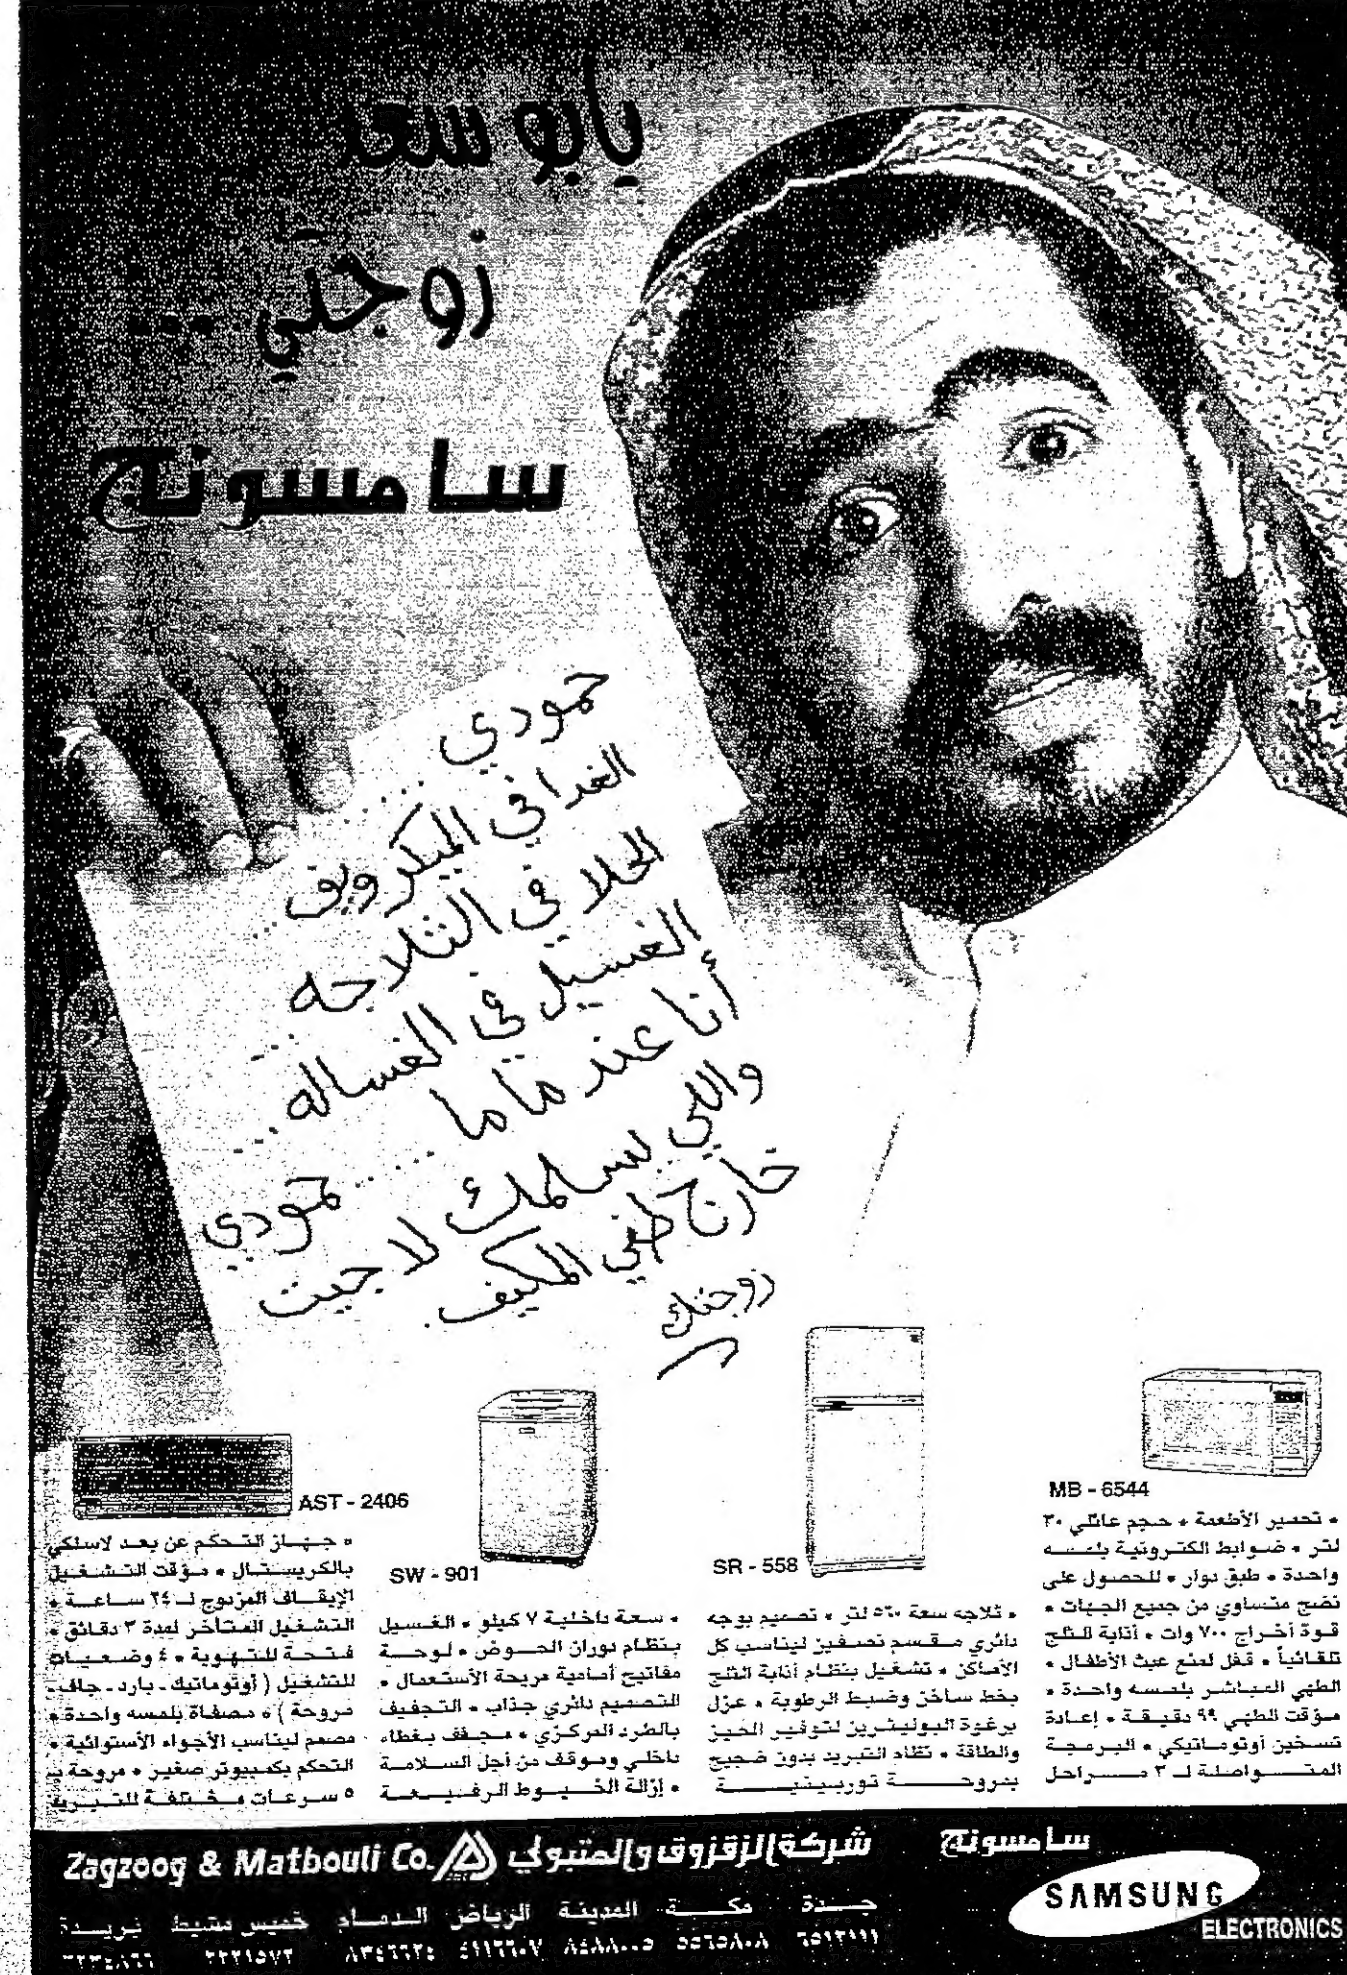 يابو سعد
زوجتي ....
سامسونج
حمودي
الغدا في الميكرويف ...
الحلا في الثلاجه ...
الغسيل في الغساله ...
أنا عند ماما ..... حمودي
واللي يسلمك لا جيت
خارج طفي المكيف.
زوجتك
MB - 6544
• تحمير الأطعمة • حجم عائلي ٣٠
لتر • ضوابط الكترونية بلمسه
واحدة • طبق دوار • للحصول على
نضج متساوي من جميع الجهات •
قوة أخراج ٧٠٠ وات • أذابة للثلج
تلقائياً • قفل لمنع عبث الأطفال •
الطهي المباشر بلمسه واحدة •
مؤقت للطهي ٩٩ دقيقة • إعادة
تسخين أوتوماتيكي • البرمجة
المتواصلة لـ ٣ مراحل
SR - 558
• ثلاجه سعة ٥٦٠ لتر • تصميم بوجه
دائري مقسم نصفين ليناسب كل
الأماكن • تشغيل بنظام أذابة الثلج
بخط ساخن وضبط الرطوبة • عزل
برغوة البوليثرين لتوفير الحيز
والطاقة • نظام التبريد بدون ضجيج
بمروحة توربينية
SW - 901
• سعة داخلية ٧ كيلو • الغسيل
بنظام دوران الحوض • لوحة
مفاتيح أمامية مريحة الأستعمال •
التصميم دائري جذاب • التجفيف
بالطرد المركزي • مجفف بغطاء
داخلي وموقف من أجل السلامة
• إزالة الخيوط الرفيعة
AST - 2406
• جهاز التحكم عن بعد لاسلكي
بالكريستال • مؤقت التشغيل
الإيقاف المزدوج لـ ٢٤ ساعة •
التشغيل المتأخر لمدة ٣ دقائق •
فتحة للتهوية • ٤ وضعيات
للتشغيل ( أوتوماتيك - بارد - جاف -
مروحة ) • مصفاة بلمسه واحدة •
مصمم ليناسب الأجواء الأستوائية •
التحكم بكمبيوتر صغير • مروحة بـ
٥ سرعات مختلفة للتبريد
سامسونج
SAMSUNG
ELECTRONICS
شركة الزقزوق والمتبولي Zagzoog & Matbouli Co.
جدة مكة المدينة الرياض الدمام خميس مشيط بريدة
٥٥٦٥٨٠٨ ٨٤٨٨٠٠٥ ٤١١٦٦٠٧ ٨٣٤٦٦٢٤ ٢٢٢١٥٧٢